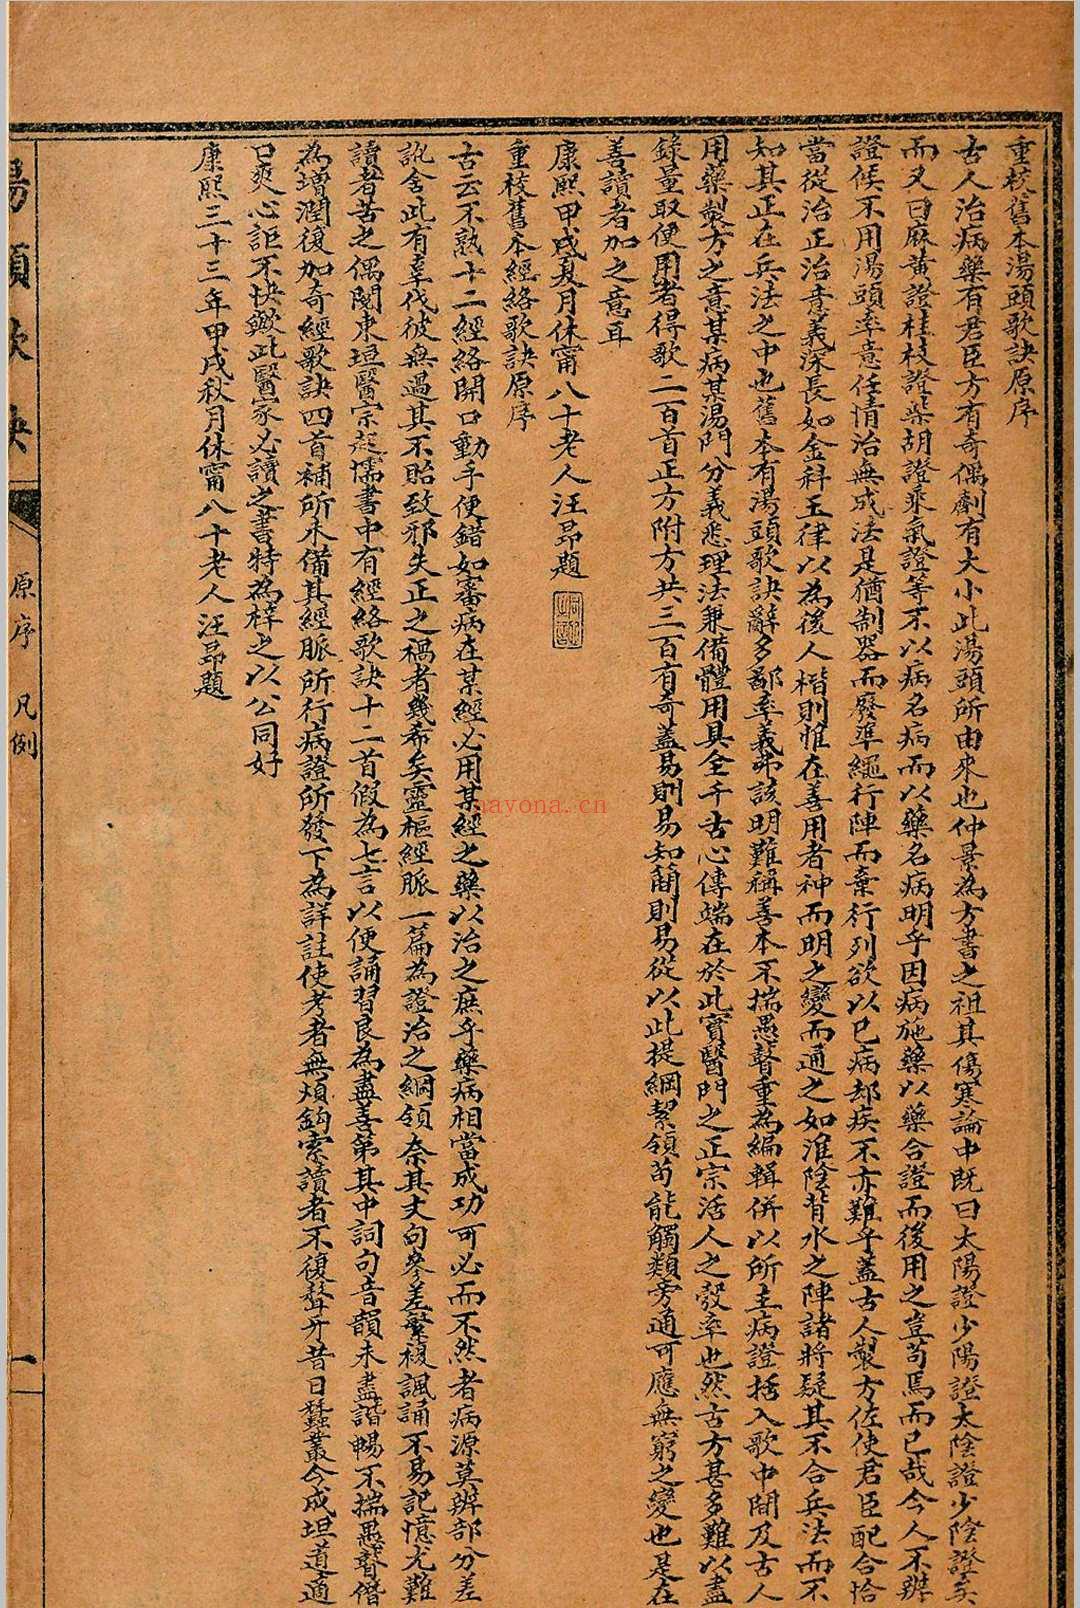 重校舊本湯頭歌訣原序
古人治病藥有君臣方有奇偶劑有大小此湯頭所由來也仲景為方書之祖其傷寒論中既曰太陽證少陽證太陰證少陰證矣
而又曰麻黃證桂枝證柴胡證承氣證等不以病名病而以藥名病明乎因病施藥以藥合證而後用之豈苟焉而已哉今人不辨
證候不用湯頭率意任情治無成法是猶制器而廢準繩行陣而棄行列欲以已病却疾不亦難乎蓋古人製方佐使君臣配合恰
當從治正治意義深長如金科玉律以為後人楷則惟在善用者神而明之變而通之如淮陰背水之陣諸將疑其不合兵法而不
知其正在兵法之中也舊本有湯頭歌訣辭多鄙率義弗該明難稱善本不揣愚瞽重為編輯併以所主病證括入歌中間及古人
用藥製方之意某病某湯門分義悉理法兼備體用具全千古心傳端在於此實醫門之正宗活人之彀率也然古方甚多難以盡
錄量取便用者得歌二百首正方附方共三百有奇蓋易則易知簡則易從以此提綱絜領苟能觸類旁通可應無窮之變也是在
善讀者加之意耳
康熙甲戌夏月休甯八十老人汪昂題
重校舊本經絡歌訣原序
古云不熟十二經絡開口動手便錯如審病在某經必用某經之藥以治之庶乎藥病相當成功可必而不然者病源莫辨部分差
訛舍此有辜伐彼無過其不貽致邪失正之禍者幾希矣靈樞經脈一篇為證治之綱領奈其文句參差繁複諷誦不易記憶尤難
讀者苦之偶閱東垣醫宗起懦書中有經絡歌訣十二首假為七言以便誦習良為盡善第其中詞句音韻未盡諧暢不揣愚瞽僭
為增潤復加奇經歌訣四首補所未備其經脈所行病證所發下為詳註使考者無煩鈎索讀者不復聱牙昔日蠶叢今成坦道適
口爽心詎不快歟此醫家必讀之書特為梓之以公同好
康熙三十三年甲戌秋月休甯八十老人汪昂題
湯頭歌訣
原序 凡例
一
nayona.cn